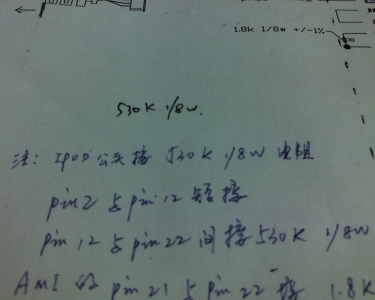 1.8K 1/8w +/-1%
530K 1/8w.
注: IPOD公头接 530K 1/8W 电阻
pin2 与 pin12 短接
pin 12 与 pin 22 间接 530K 1/8W
AMI 的 pin 21 与 pin 22 接 1.8K